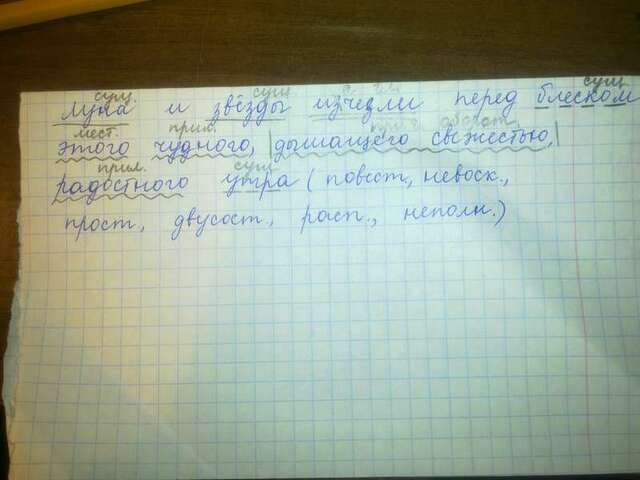 сущ. сущ. сущ.
Луна и звёзды исчезли перед блеском
мест. прил. оборот
этого чудного, дышащего свежестью,
прил. сущ.
радостного утра (повест, невоск.,
прост, двусост, расп., неполн.)